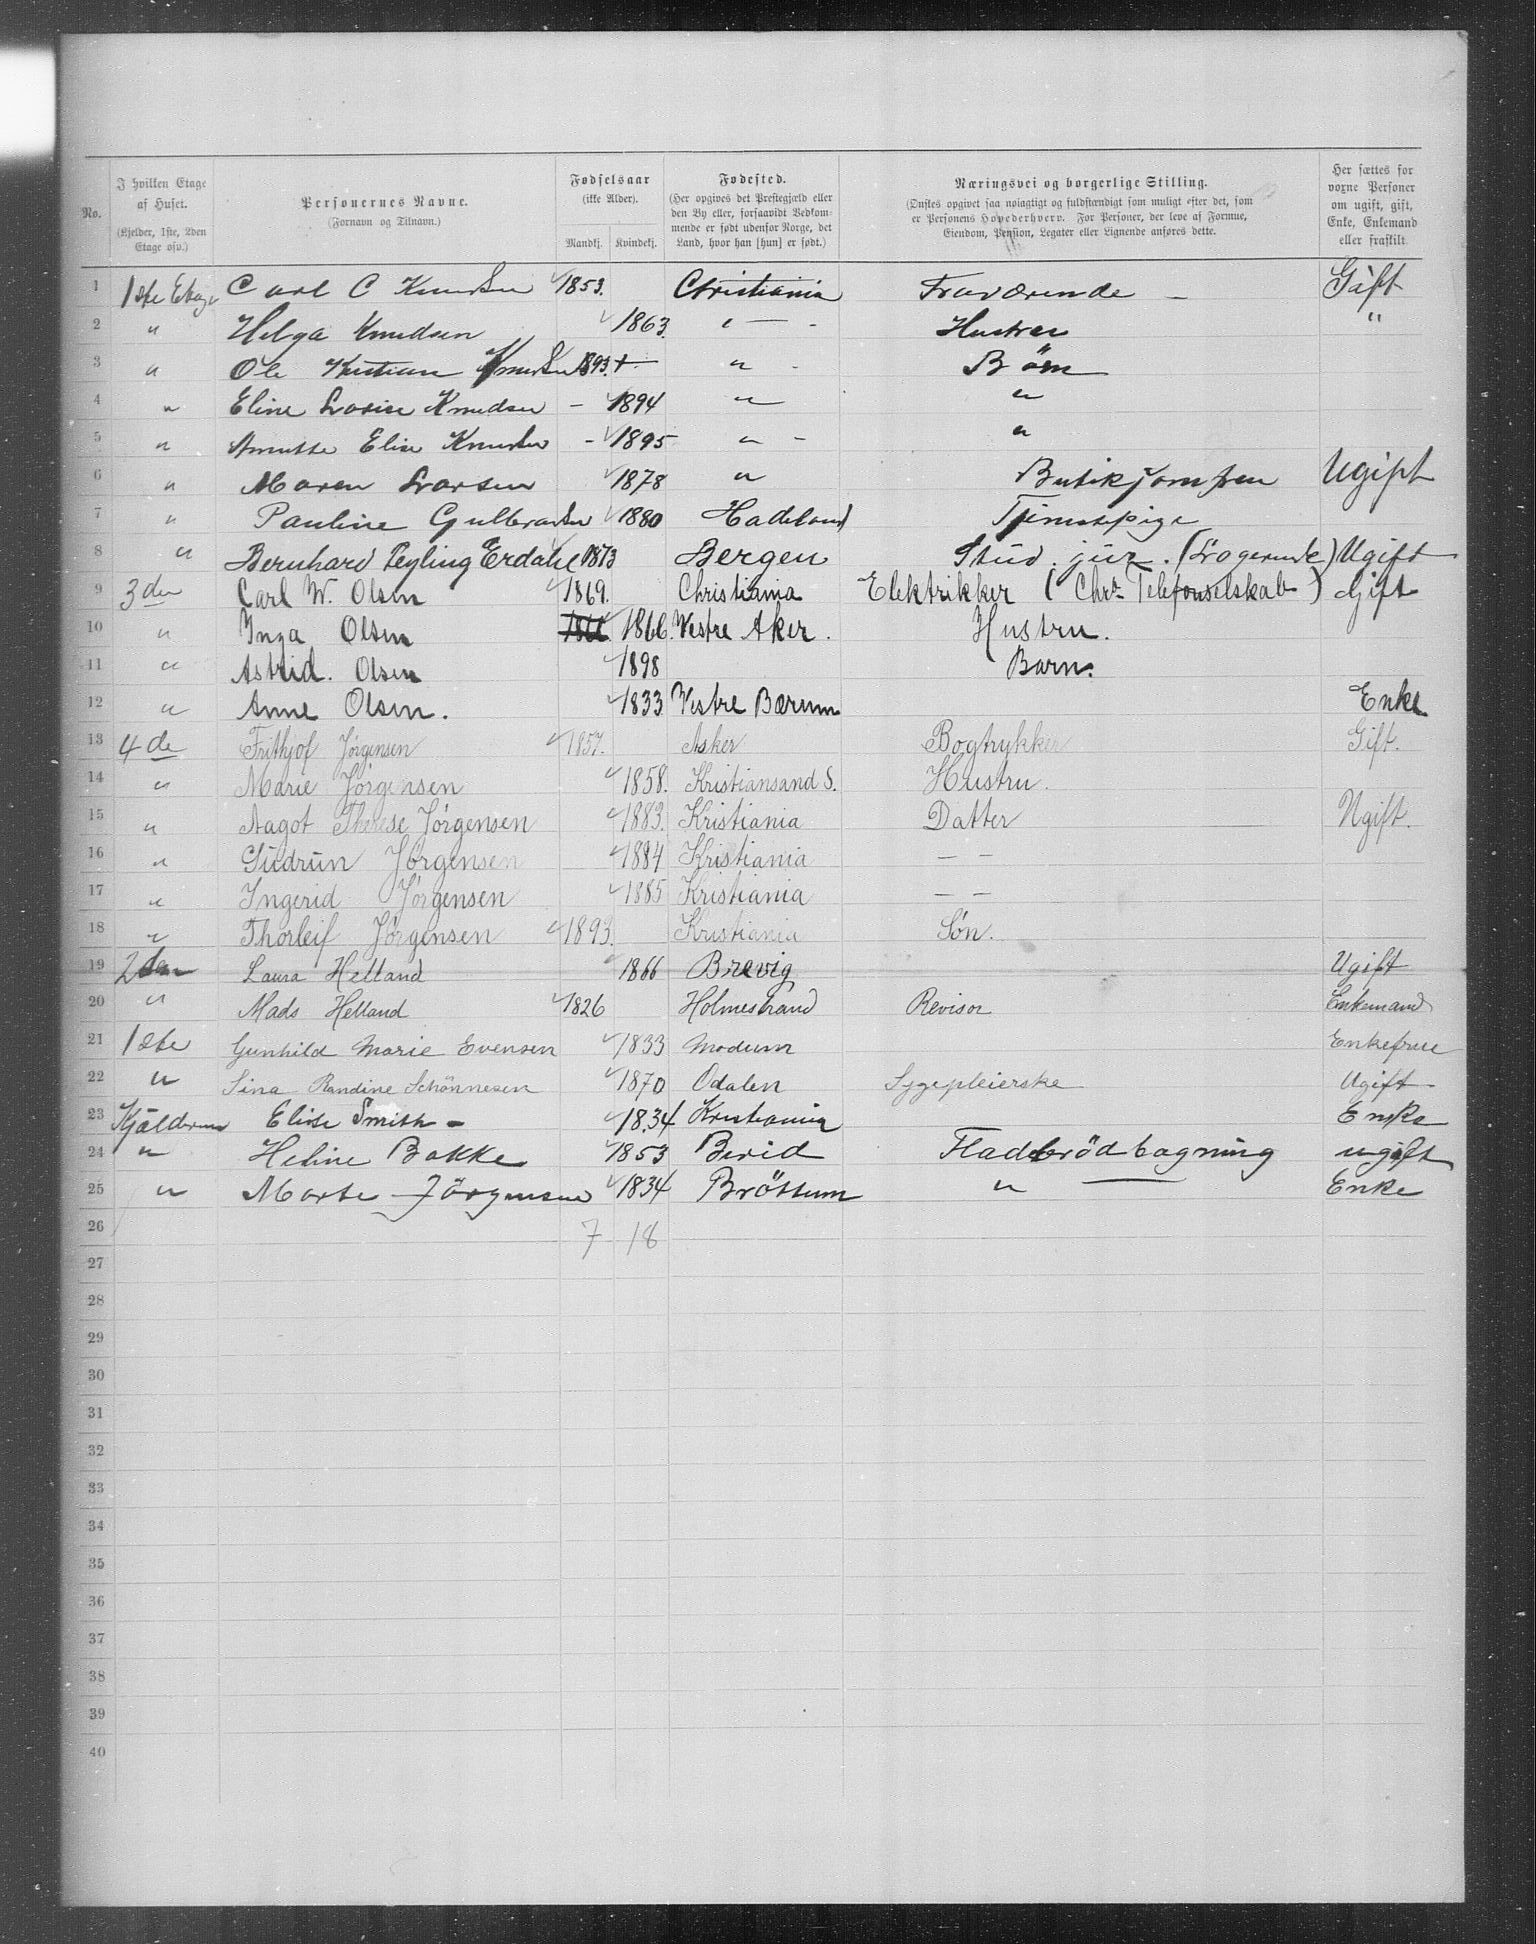 No.
I hvilken Etage af Huset. (Kjelder, 1ste, 2den Etage osv.)
Personernes Navne. (Fornavn og Tilnavn.)
Fødselsaar (ikke Alder). Mandkj. Kvindekj.
Fødested. (Her opgives det Prestegjæld eller den By eller, forsaavidt Vedkommende er født udenfor Norge, det Land, hvor han [hun] er født.)
Næringsvei og borgerlige Stilling. (Ønskes opgivet saa nøiagtigt og fuldstændigt som muligt efter det, som er Personens Hovederhverv. For Personer, der leve af Formue, Eiendom, Pension, Legater eller Lignende anføres dette.
Her sættes for voxne Personer om ugift, gift, Enke, Enkemand eller fraskilt.
1 1ste Etage Carl C Knudsen 1853. Christiania Fraværende — Gift
2 " Helga Knudsen 1863. " — - Hustru "
3 " Ole Kristian Knudsen 1893. + " - Börn
4 " Eline Lovise Knudsen - 1894 " "
5 " Annette Elise Knudsen - 1895 " - "
6 " Maren Larsen 1878 " Butikjomfru Ugift
7 " Pauline Gulbrandsen 1880 Hadeland Tjenstepige
8 " Bernhard Teyling Erdahl 1873 Bergen Stud. jur. (Logerende) Ugift
9 3den Carl W. Olsen 1869. Christiania Elektrikker (Chr. Telefonselskab) Gift
10 " Inga Olsen 1866. Vestre Aker. Hustru.
11 " Astrid. Olsen 1898 Barn.
12 " Anne Olsen. 1833 Vestre Bærum Enke
13 4de Frithjof Jørgensen 1857. Asker Bogtrykker Gift.
14 " Marie Jørgensen 1858. Kristiansand S. Hustru.
15 " Aagot Therese Jørgensen 1883. Kristiania Datter Ugift.
16 " Gudrun Jørgensen 1884 Kristiania — —
17 " Ingerid Jørgensen 1885 Kristiania — —
18 " Thorleif Jørgensen 1893. Kristiania Søn.
19 2den Laura Helland 1866 Brevig Ugift
20 " Mads Helland 1826 Holmestrand Revisor Enkemand
21 1ste Gunhild Marie Evensen 1833 Modum Enkefrue
22 " Sina Randine Schönnesen 1870 Odalen Sygepleierske Ugift
23 Kjälderen Elise Smith - 1834 Kristiania Enke
24 " Heline Bakke 1853 Berid Fladbrödbagning ugift
25 " Marte Jörgensen 1834 Bröttum " — Enke
26 7 18
27
28
29
30
31
32
33
34
35
36
37
38
39
40